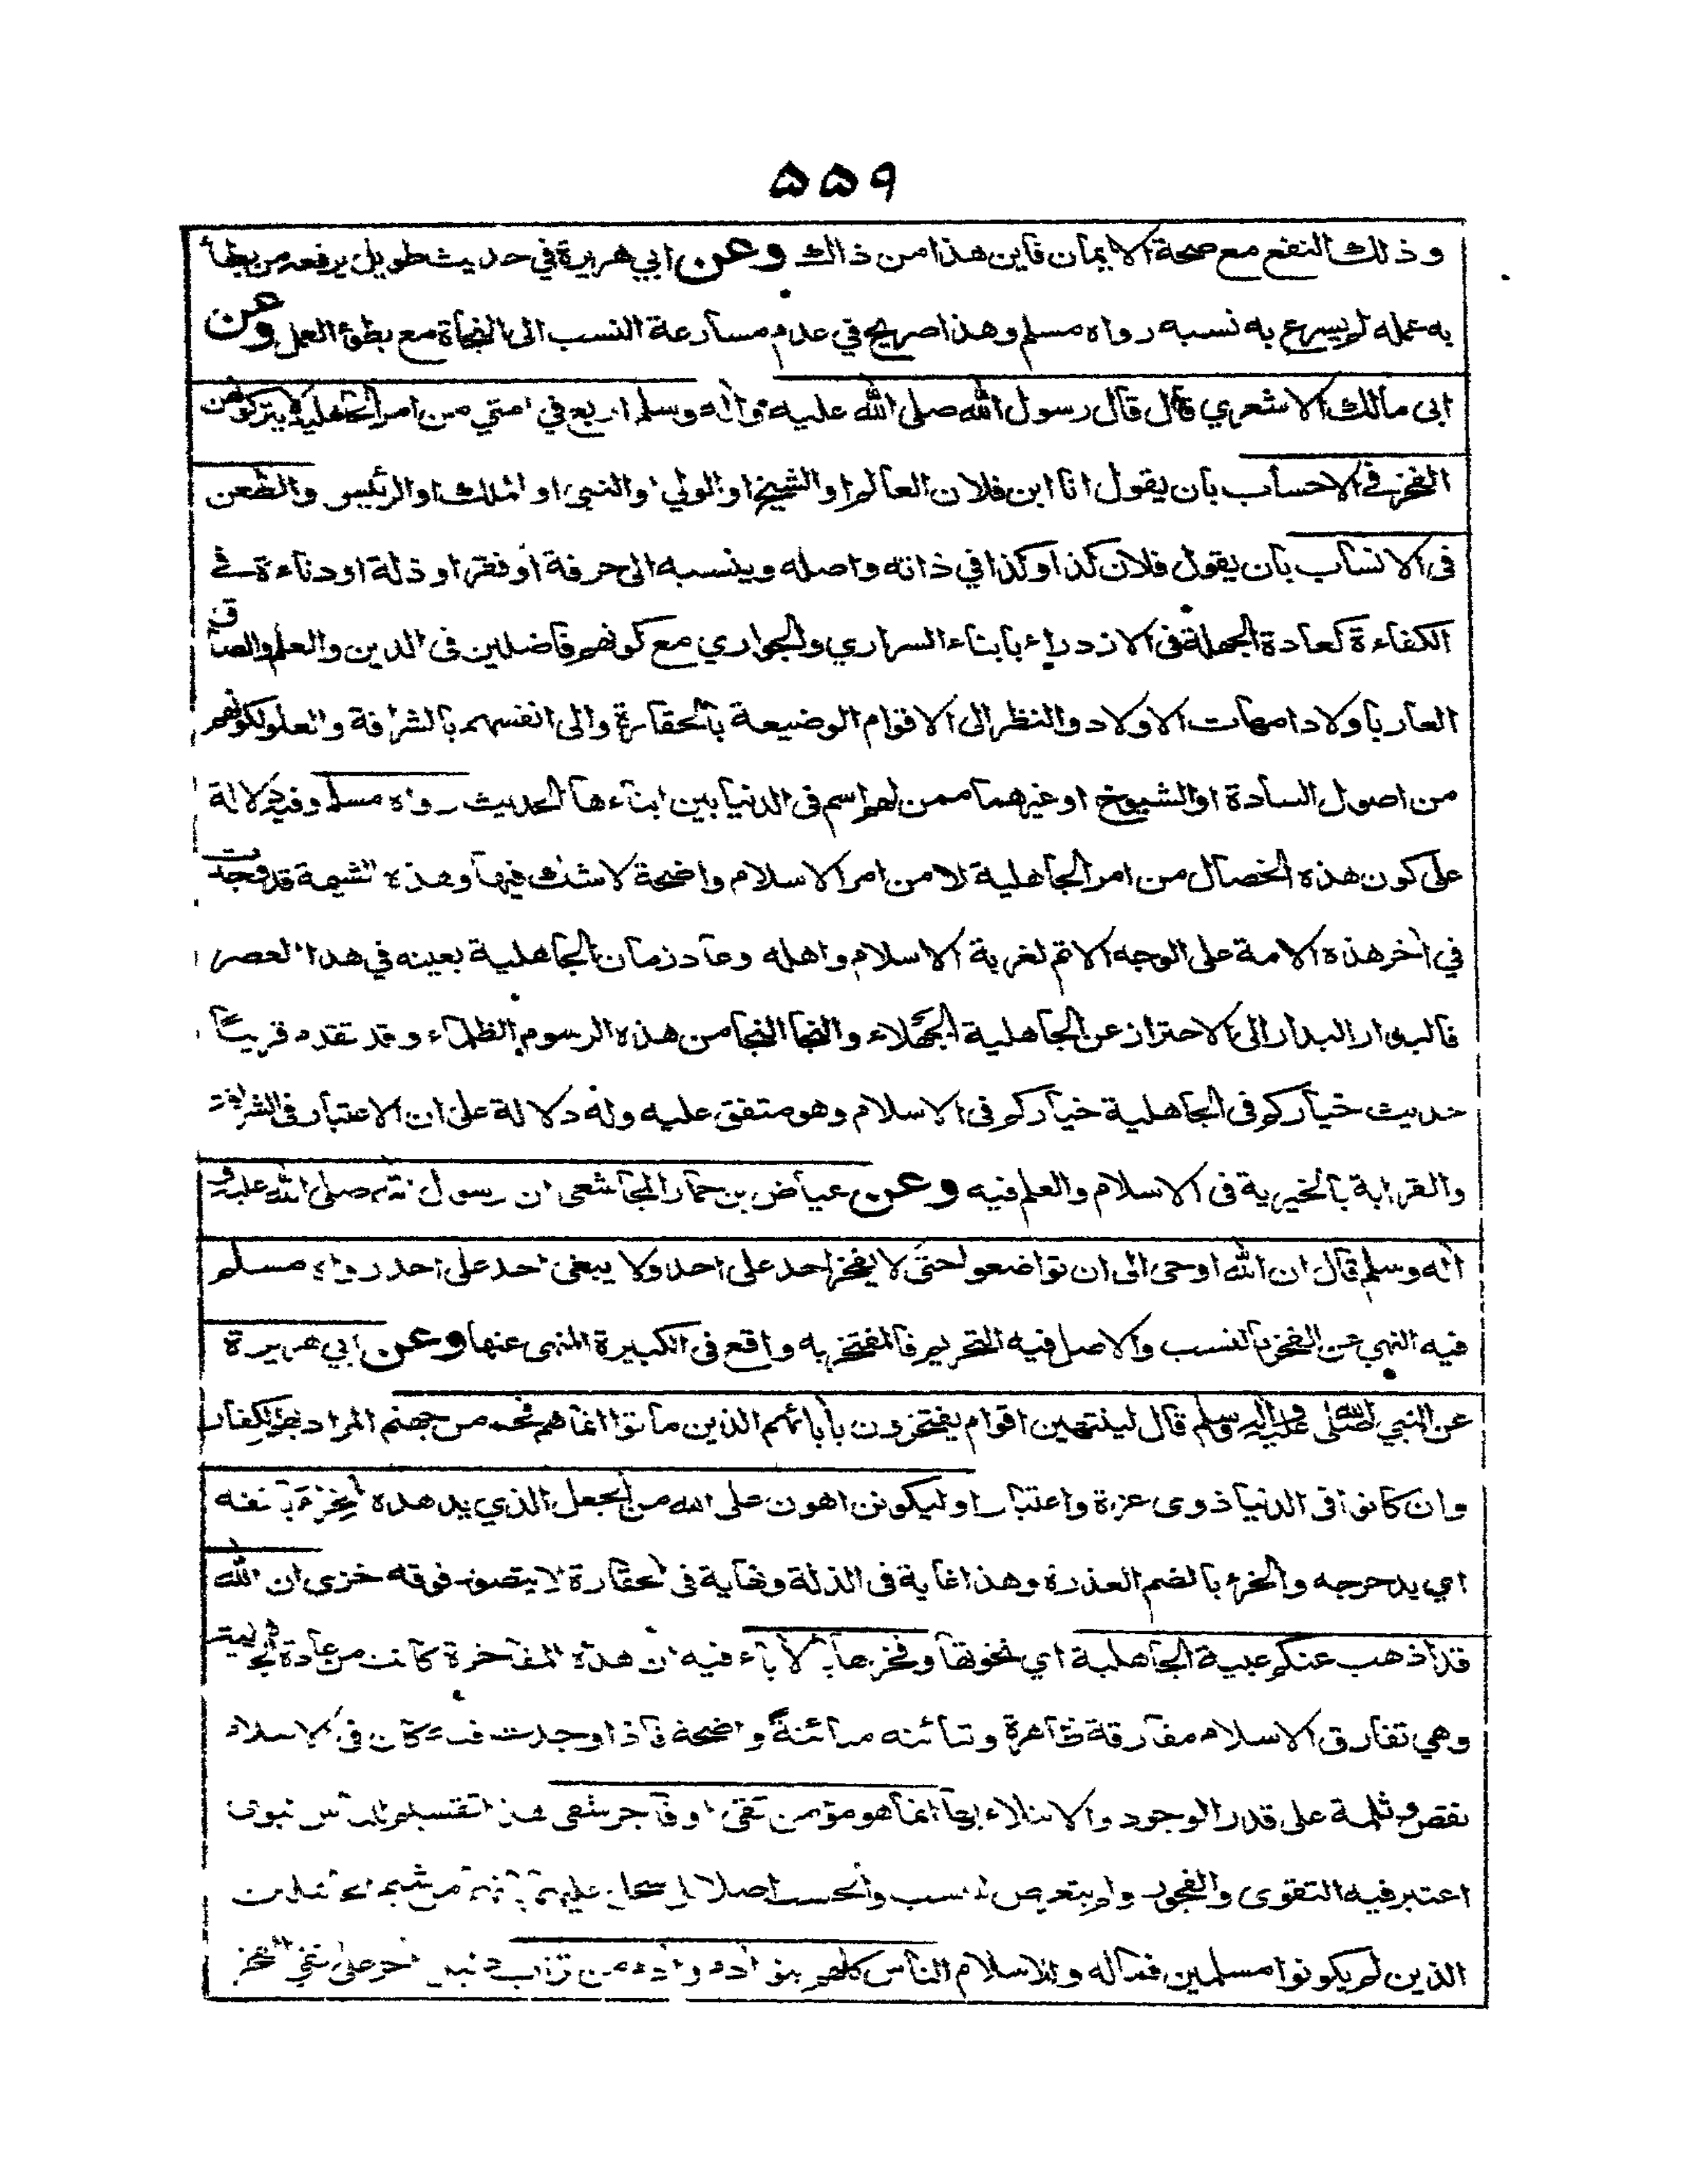 ۵۵۹
وذلك النفع مع صحة الايمان فاين هذا من ذاك وعن ابي هريرة في حديث طويل يرفعه من بطأ
به عمله لم يسرع به نسبه رواه مسلم وهذا صريح في عدم مسارعة النسب الى النجاة مع بطؤ العمل وعن
ابى مالك الاشعري قال قال رسول الله صلى الله عليه واله وسلم اربع في امتي من امر الجاهلية لا يتركونهن
الفخر في الاحساب بان يقول انا ابن فلان العالم او الشيخ او الولي او النبي او الملك او الرئيس والطعن
فى الانساب بان يقول فلان كذا وكذا في ذاته واصله وينسبه الى حرفة او فقر او ذلة او دناءة في
الكفاءة كعادة الجهلة فى الازدراء بابناء السراري والجواري مع كونهم فاضلين فى الدين والعلم والصاق
العار باولاد امهات الاولاد والنظر الى الاقوام الوضيعة بالحقارة والى انفسهم بالشرافة والعلو لكونهم
من اصول السادة او الشيوخ او غيرهما ممن لهم اسم فى الدنيا بين ابناءها الحديث رواه مسلم وفيه دلالة
على كون هذه الخصال من امر الجاهلية لا من امر الاسلام واضحة لا شك فيها وهذه الشيمة قد وجدت
في اخر هذه الامة على الوجه الاتم لغربة الاسلام واهله وعاد زمان الجاهلية بعينه في هذا العصر
فالبدار البدار الى الاحتراز عن الجاهلية الجهلاء والنجا النجا من هذه الرسوم الظلماء وقد تقدم قريبا
حديث خياركم فى الجاهلية خياركم فى الاسلام وهو متفق عليه وله دلالة على ان الاعتبار فى الشرافة
والقرابة بالخيرية فى الاسلام والعلم فيه وعن عياض بن حمار المجاشعى ان رسول الله صلى الله عليه و
اله وسلم قال ان الله اوحى الى ان تواضعوا حتى لا يفخر احد على احد ولا يبغى احد على احد رواه مسلم
فيه النهي عن الفخر بالنسب والاصل فيه التحريم فالمفتخر به واقع فى الكبيرة المنهى عنها وعن ابي هريرة
عن النبي صلى الله عليه واله وسلم قال لينتهين اقوام يفتخرون بأبائهم الذين ماتوا انما هم فحم من جهنم المراد بهم الكفار
وان كانوا فى الدنيا ذوى عزة واعتبار او ليكونن اهون على الله من الجعل الذي يدهده الخرء بانفه
اي يدحرجه والخرء بالضم العذرة وهذا غاية فى الذلة ونهاية فى الحقارة لا يتصور فوقه خزى ان الله
قد اذهب عنكم عبية الجاهلية اي نخوتها وفخرها بالأباء فيه ان هذه المفاخرة كانت من عادة الجاهلية
وهي تفارق الاسلام مفارقة ظاهرة وتبائنه مبائنة واضحة فاذا وجدت فيه كان فى الاسلام
نقص وثلمة على قدر الوجود والابتلاء بها انما هو مؤمن تقى او فاجر شقى هذا تقسيم للناس نبوى
اعتبر فيه التقوى والفجور ولم يتعرض لنسب والحسب اصلا
الذين لم يكونوا مسلمين فماله والاسلام الناس كلهم بنو ادم وادم من تراب على الفخر